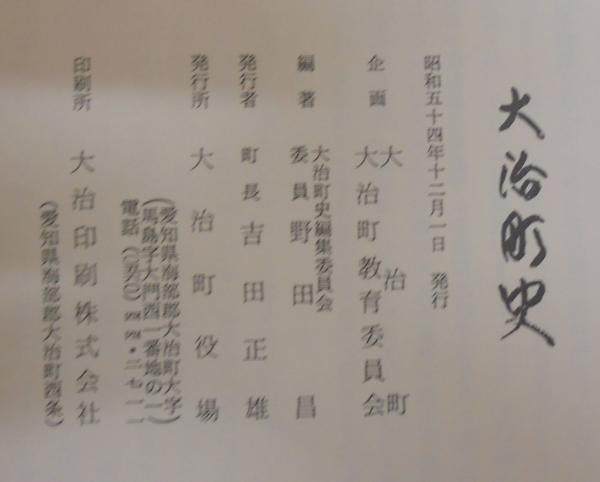 大治町史
昭和五十四年十二月一日 発行
企画 大治町
大治町教育委員会
編著 大治町史編集委員会
委員 野田昌
発行者 町長 吉田正雄
発行所 大治町役場
(愛知県海部郡大治町大字
馬島字大門西一番地の一)
電話(〇五二)四四四・二七一一
印刷所 大治印刷株式会社
(愛知県海部郡大治町西条)